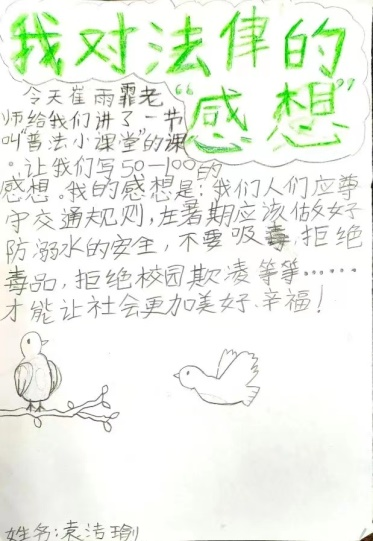 我对法律的
“感想”
今天崔雨霏老
师给我们讲了一节
叫“普法小课堂”的课
。让我们写50—100的
感想。我的感想是：我们人们应尊
守交通规则，在暑期应该做好
防溺水的安全，不要吸毒，拒绝
毒品，拒绝校园欺凌等等……
才能让社会更加美好、辛福！
姓名：袁洁瑜